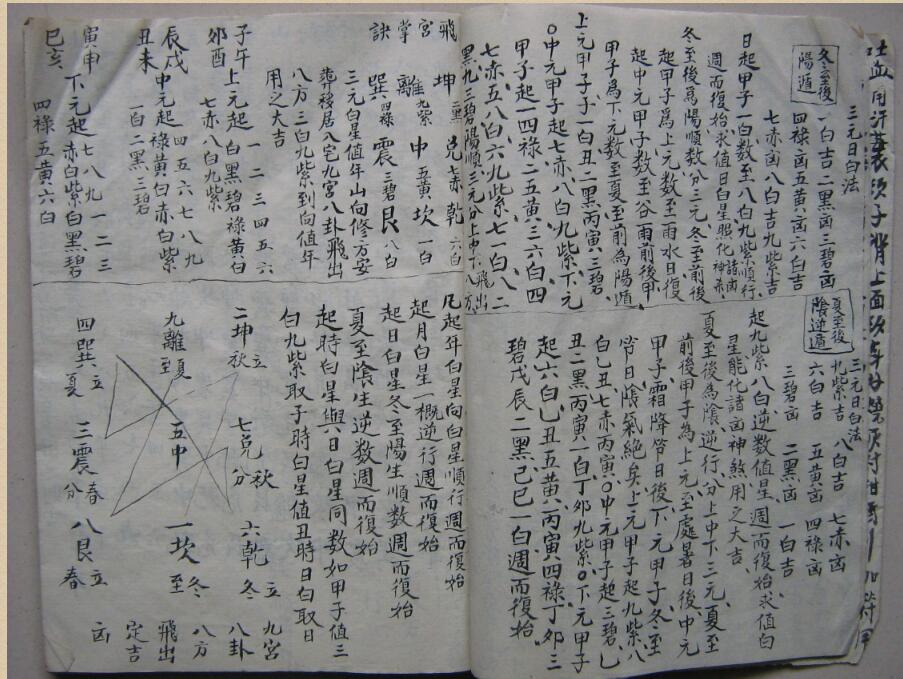 冬至後
陽遁
三元日白法
一白吉二黑凶三碧凶
四祿凶五黃凶六白吉
七赤凶八白吉九紫吉
日起甲子一白數至八白九紫順行
週而復始求值日白星照化諸凶神煞
冬至後為陽順數分三元冬至前後
起甲子為上元數至雨水日復
起中元甲子數至谷雨前後甲
甲子為下元數至夏至前為陽遁
上元甲子子一白丑二黑丙寅三碧
〇中元甲子起七赤八白九紫下元
甲子起四祿二五黃三六白四
七赤五八白六九紫七一白八二
黑九三碧陽順三元分上中下飛出八方
夏至後
陰逆遁
三元日白法
九紫吉 八白吉 七赤凶
六白吉 五黃凶 四祿凶
三碧凶 二黑凶 一白吉
起九紫八白逆數值星週而復始求值白
星能化諸凶神煞用之大吉
夏至後為陰逆行分上中下三元夏至
前後甲子為上元至處暑日後中元
甲子霜降節日後下元甲子冬至
節日陰氣絕矣上元甲子起九紫八
白乙丑七赤丙寅〇中元甲子起三碧乙
丑二黑丙寅一白丁卯九紫〇下元甲子
起六白乙丑五黃丙寅四祿丁卯三
碧戊辰二黑己巳一白週而復始
飛宮掌訣
坤二黑 兌七赤 乾六白
離九紫 中五黃 坎一白
巽四祿 震三碧 艮八白
三元白星值年山向修方安
葬移居八宅九宮八卦飛出
八方三白九紫到向值年
用之大吉
子午
卯酉
上元起一白黑碧祿黃白
一二三四五六
七赤八白九紫
辰戌
丑未
中元起祿黃白赤白紫
四五六七八九
一白二黑三碧
寅申
巳亥
下元起赤白紫白黑碧
七八九一二三
四祿五黃六白
凡起年白星向白星順行週而復始
起月白星一概逆行週而復始
起日白星冬至陽生順數週而復始
夏至陰生逆數週而復始
起時白星與日白星同數如甲子值三
白九紫取子時白星值丑時白取日
二坤立秋
七兌秋分
六乾立冬
九離夏至
五中
一坎冬至
四巽立夏
三震春分
八艮立春
九宮
八卦
八方
飛出
定吉
凶